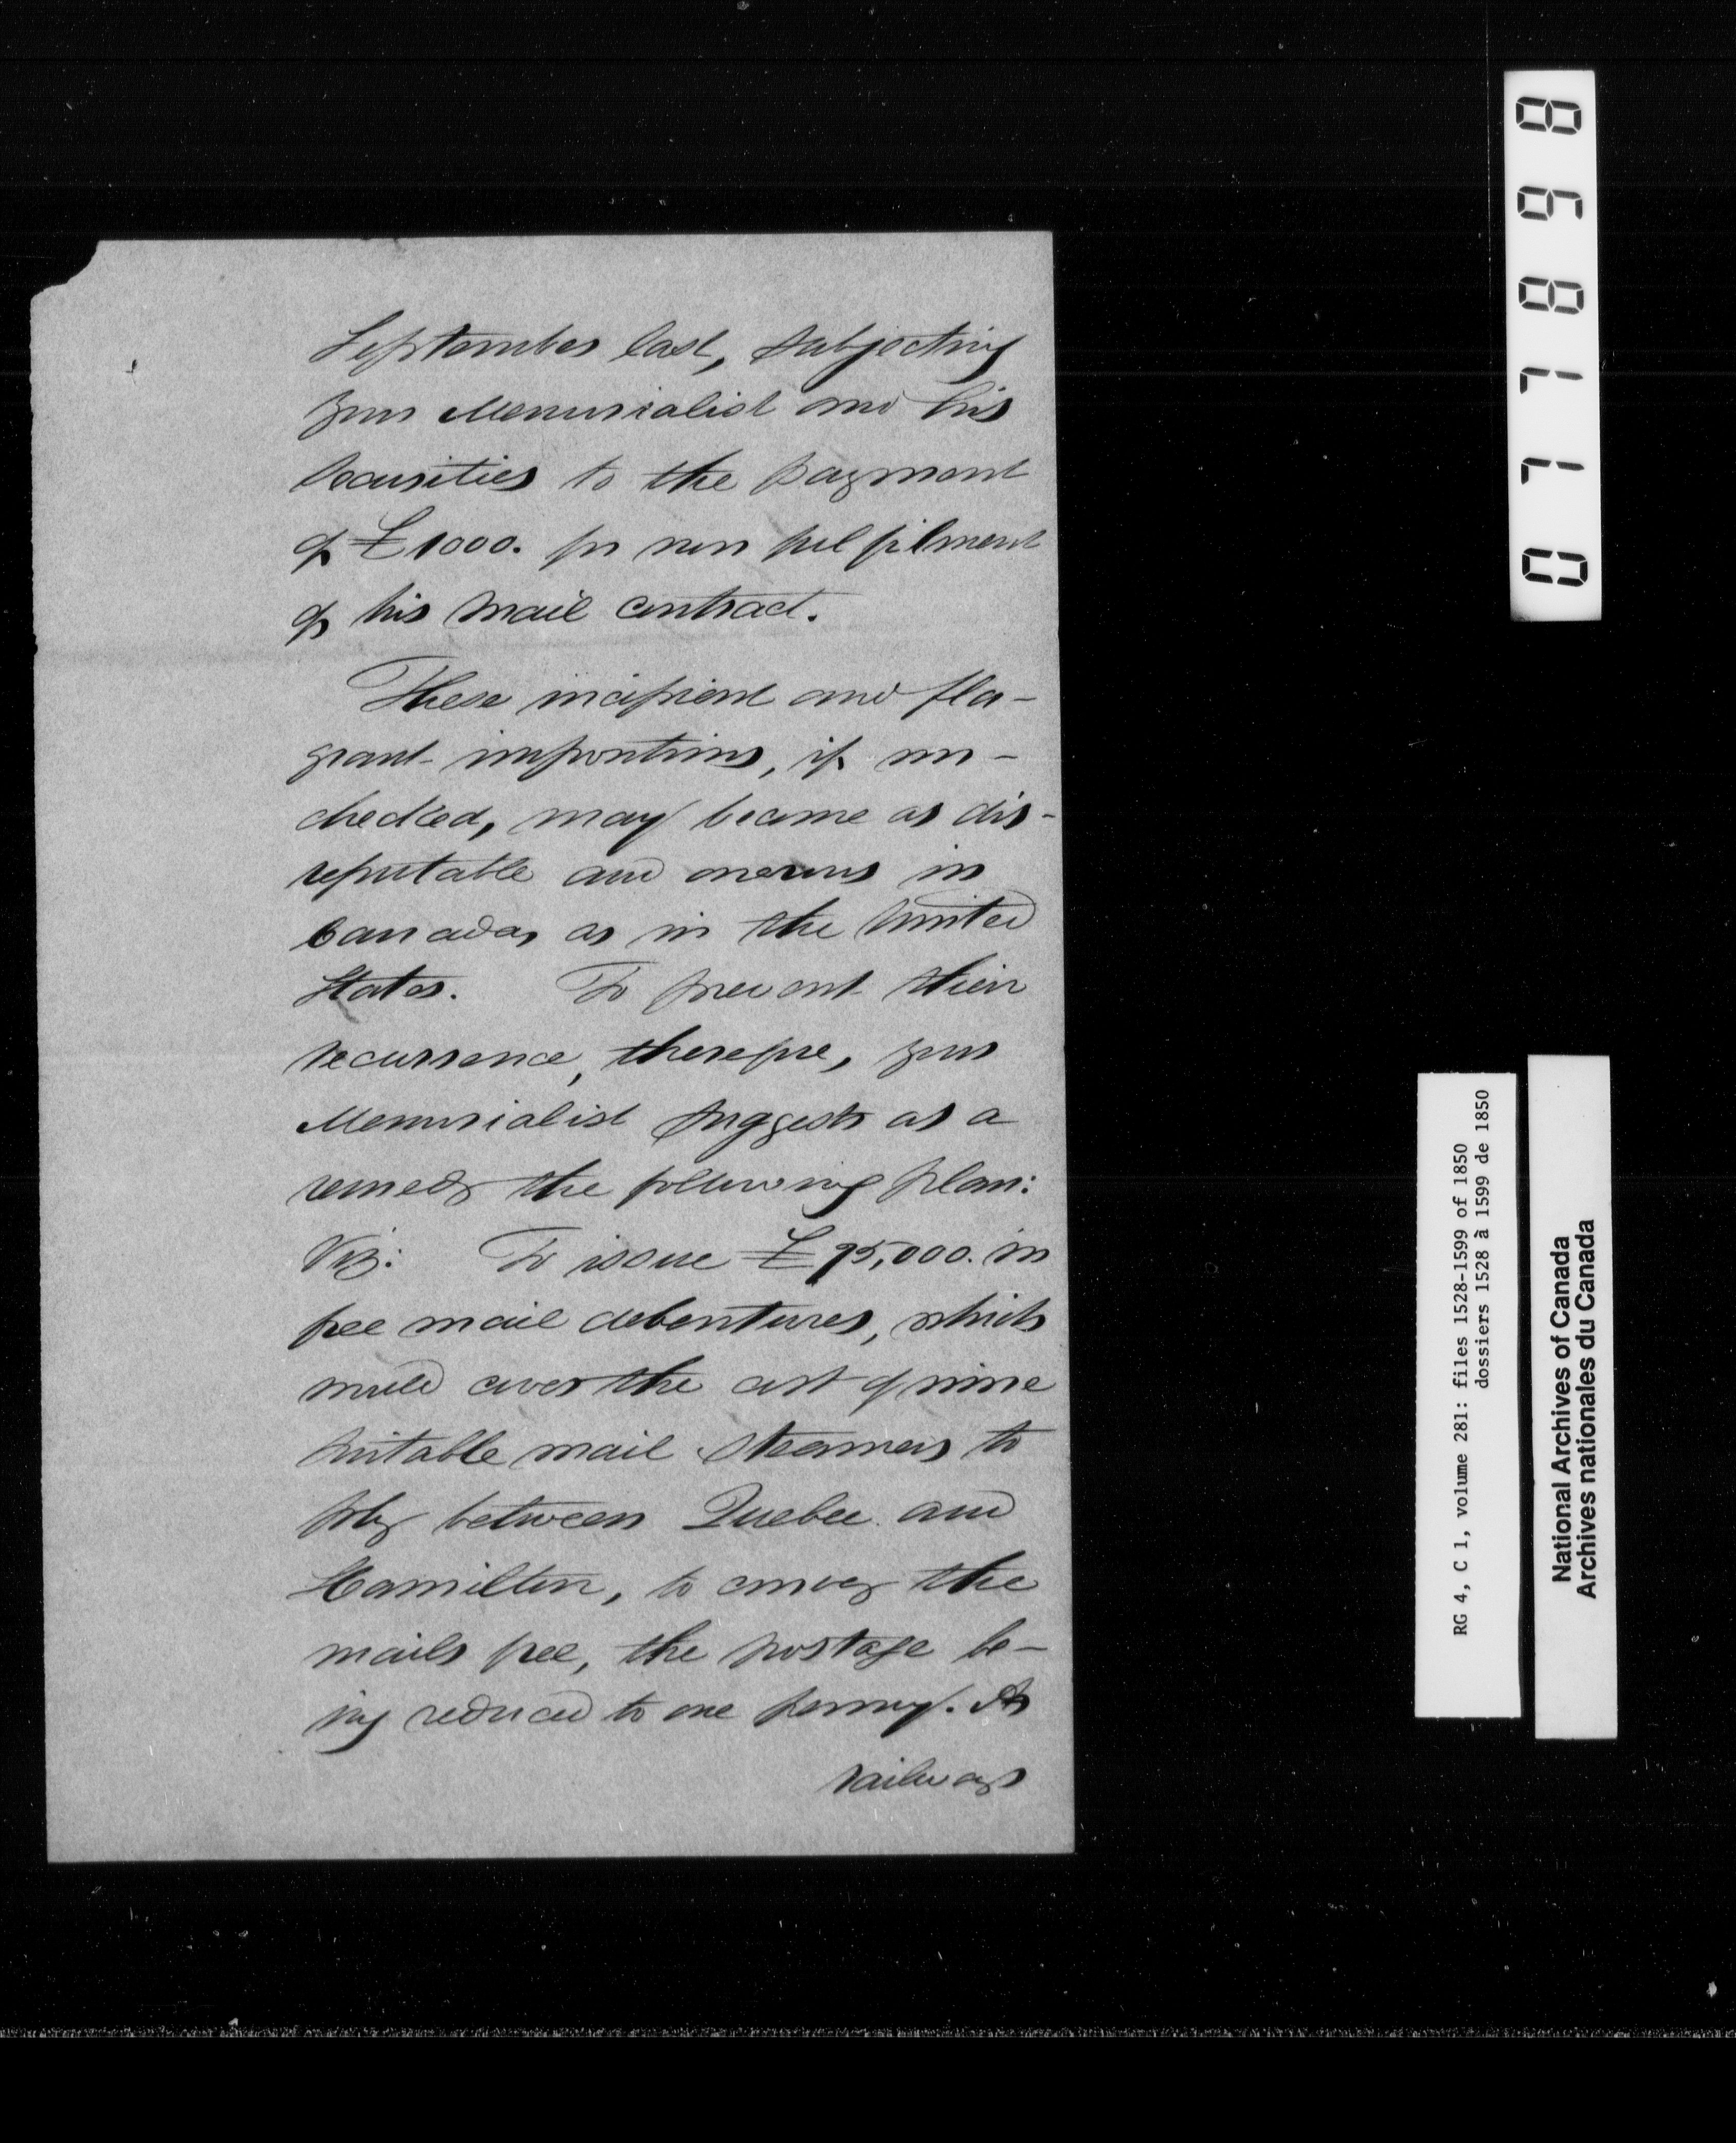 September last, subjecting
your Memorialist and his
securities to the payment
of £1000. for non fulfilment
of his mail contract.
These incipient and fla-
grant impositions, if un-
checked, may become as dis-
reputable and onerous in
Canada, as in the United
States. To prevent their
recurrence, therefore, your
Memorialist suggests as a
remedy the following plan:
Viz: To issue £95,000. in
free mail debentures, which
would cover the cost of nine
suitable mail steamers to
ply between Quebec and
Hamilton, to convey the
mails free, the postage be-
ing reduced to one penny. As
railways
077898
RG 4, C 1, volume 281: files 1528-1599 of 1850
dossiers 1528 à 1599 de 1850
National Archives of Canada
Archives nationales du Canada